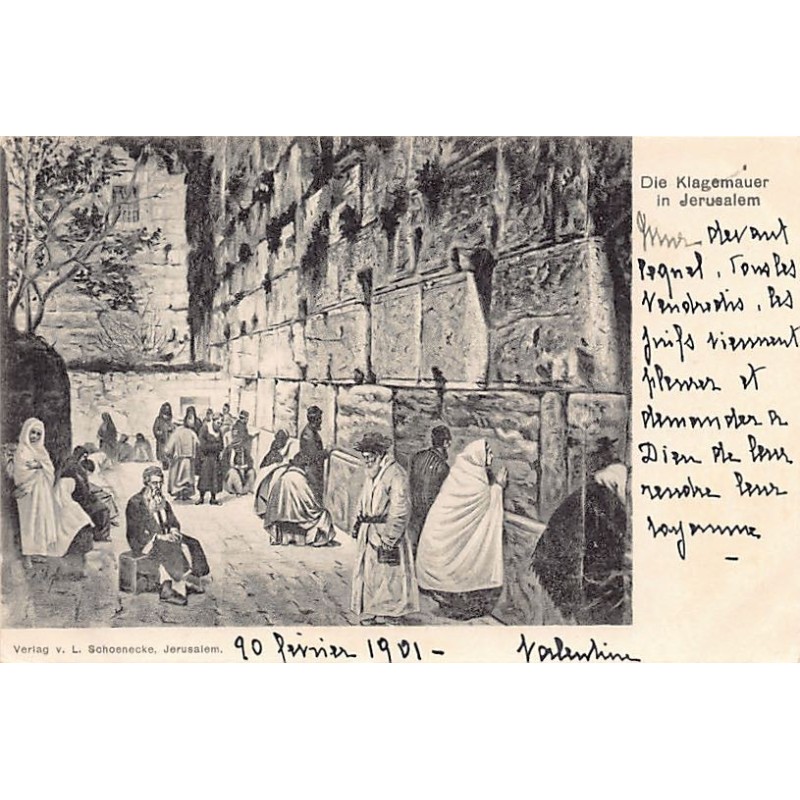 Die Klagemauer
in Jerusalem
Mur devant
lequel, tous les
Vendredis, les
juifs viennent
pleurer et
demander a
Dieu de leur
rendre leur
royaume –
Verlag v. L. Schoenecke, Jerusalem. 20 février 1901 – Valentine